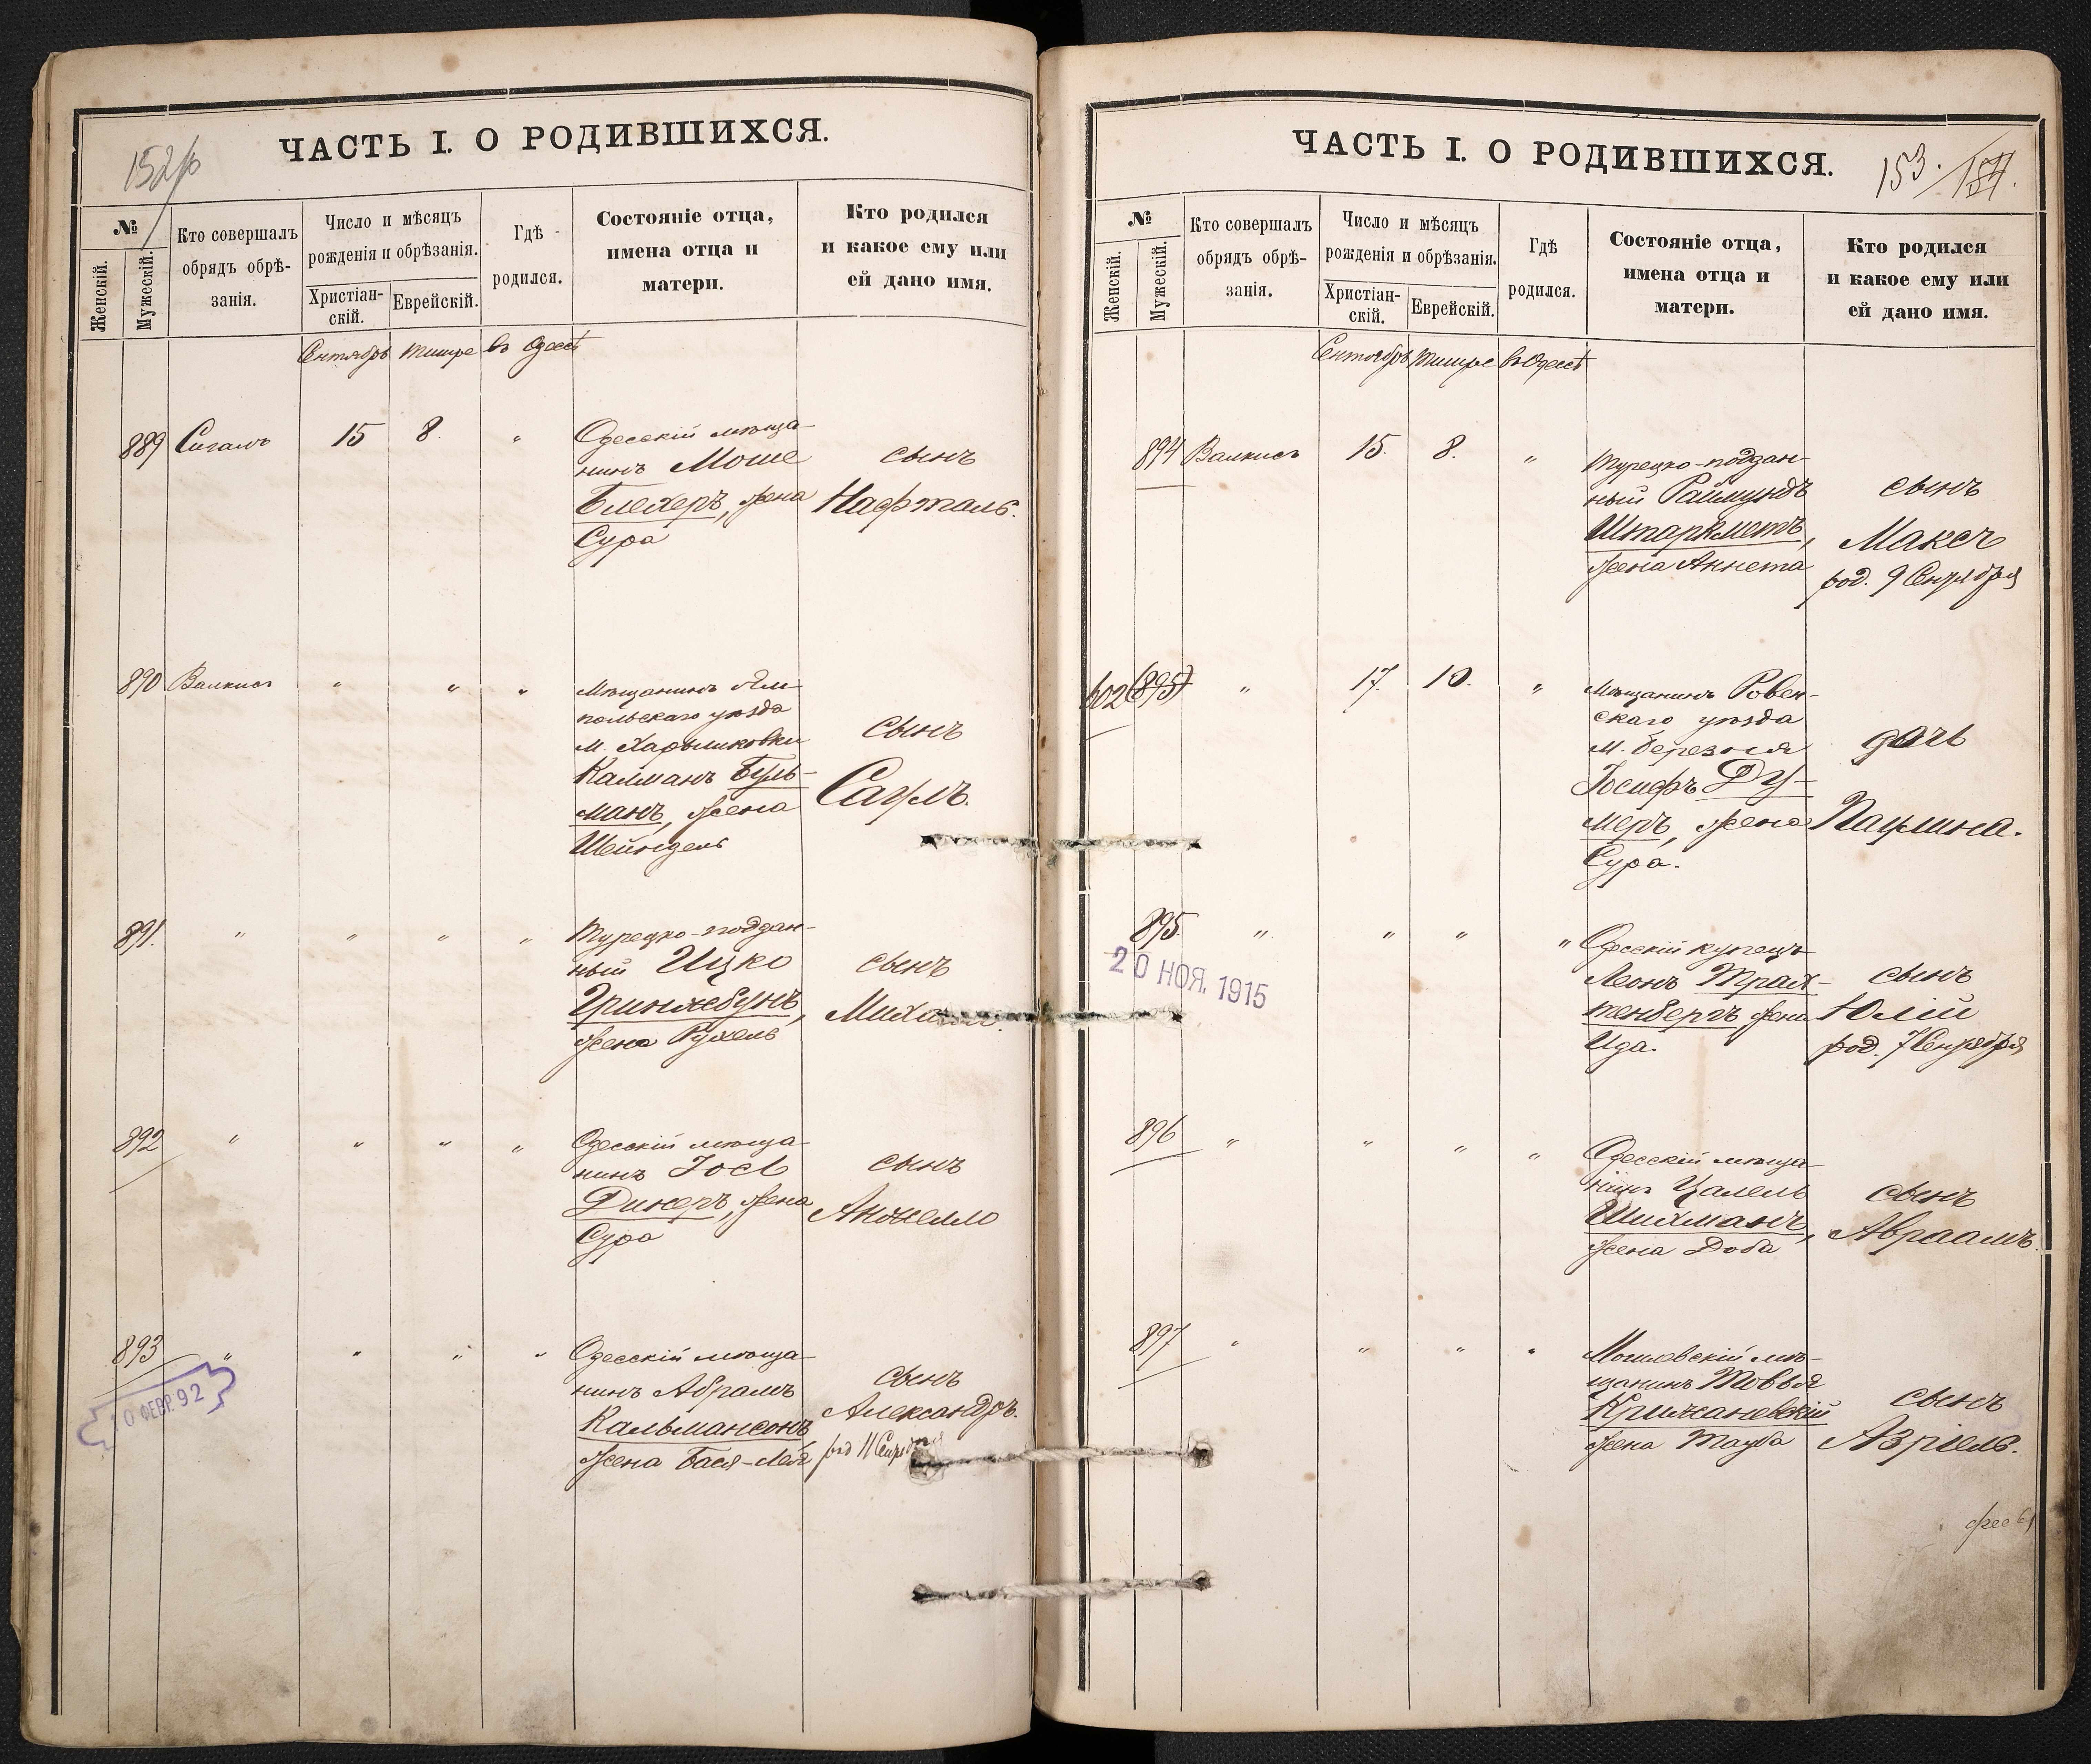 152об
ЧАСТЬ I. О РОДИВШИХСЯ.
№
Женскій.
Мужескій.
Кто совершалъ
обрядъ обрѣ-
занія.
Число и мѣсяцъ
рожденія и обрѣзанія.
Христіан-
скій.
Еврейскій.
Гдѣ
родился.
Состояніе отца,
имена отца и
матери.
Кто родился
и какое ему или
ей дано имя.
Сентябрь Тишре въ Одессѣ
889 Сигалъ 15 8. "
Одесскій мѣща-
нинъ Моше
Блехеръ, жена
Сура
сынъ
Нафталь.
890 Валкисъ " " "
Мѣщанинъ Ям-
польскаго уѣзда
м.
Калманъ Гуль-
манъ, жена
Шейндель
сынъ
Саулъ.
891. " " " "
Турецко-поддан-
ный Ицко
Гринжебунъ,
жена Рухель
сынъ
892 " " " "
Одесскій мѣща-
нинъ Іосъ
Динеръ, жена
Сура
сынъ
Анжелло
893 " " " "
0 ФЕВР. 92
Одесскій мѣща-
нинъ Абрамъ
Кальмансонъ,
жена Бася-Лея
сынъ
Александръ.
род 11 Сентября
ЧАСТЬ I. О РОДИВШИХСЯ.
153.
№
Женскій.
Мужескій.
Кто совершалъ
обрядъ обрѣ-
занія.
Число и мѣсяцъ
рожденія и обрѣзанія.
Христіан-
скій.
Еврейскій.
Гдѣ
родился.
Состояніе отца,
имена отца и
матери.
Кто родился
и какое ему или
ей дано имя.
Сентябрь Тишре въ Одессѣ
894 Валкисъ 15. 8. "
Турецко-поддан-
ный Раймундъ
Штаркметъ,
жена Аннета
сынъ
Максъ
род. 9 Сентября
602 (895) " 17. 10. "
Мѣщанинъ Ровен-
скаго уѣзда
м. Березня
Іосифъ Ду-
меръ, жена
Сура.
дочь
Паулина.
895. " " " "
20 НОЯ. 1915
Одесскій купецъ
Леонъ Трах-
тенбергъ жена
Ида.
сынъ
Юлій
род. 7 Сентября
896 " " " "
Одесскій мѣща-
нинъ Цалель
Шихманъ,
жена Доба
сынъ
Авраамъ.
897 " " " "
Могилевскій мѣ-
щанинъ Товья
Крижановскій
жена Тауба
сынъ
Азріель.